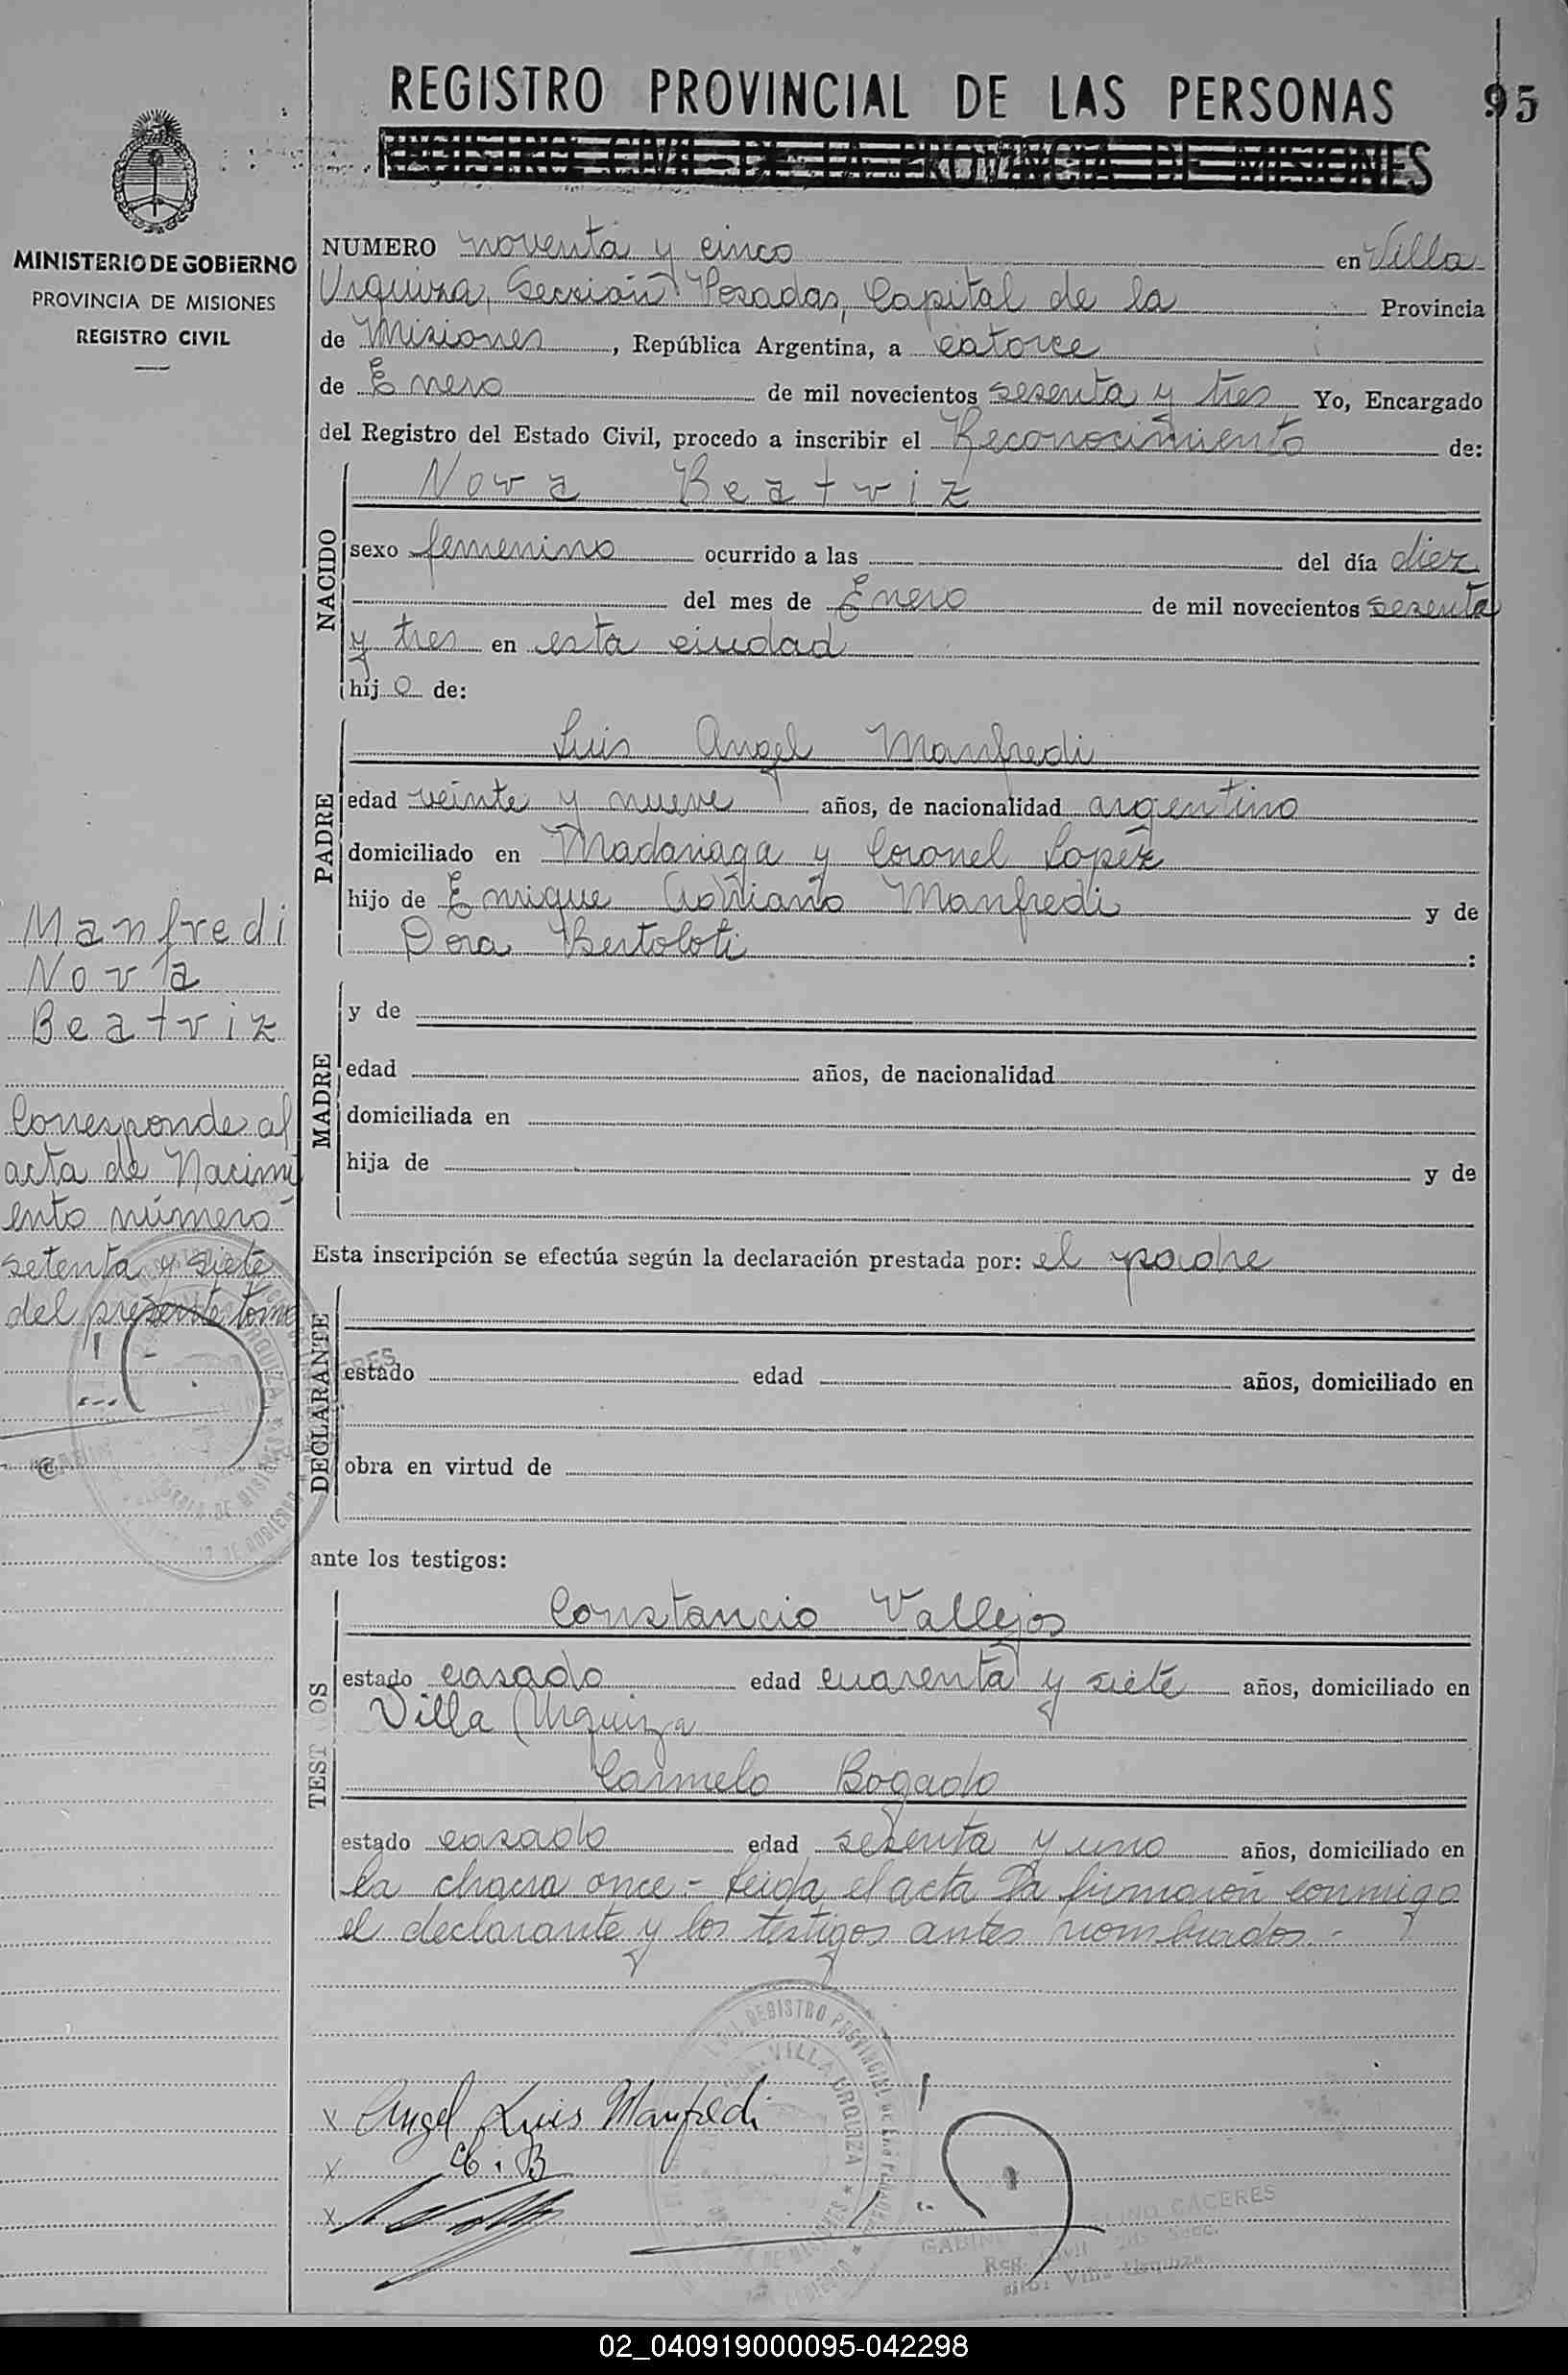 REGISTRO PROVINCIAL DE LAS PERSONAS
95
REGISTRO CIVIL DE LA PROVINCIA DE MISIONES
MINISTERIO DE GOBIERNO
PROVINCIA DE MISIONES
REGISTRO CIVIL
NUMERO noventa y cinco en Villa
Urquiza, Sección Posadas, Capital de la Provincia
de Misiones, República Argentina, a catorce
de Enero de mil novecientos sesenta y tres Yo, Encargado
del Registro del Estado Civil, procedo a inscribir el Reconocimiento de:
NACIDO
Nora Beatriz
sexo femenino ocurrido a las del día diez
del mes de Enero de mil novecientos sesenta
y tres en esta ciudad
hij o de:
PADRE
Luis Angel Manfredi
edad veinte y nueve años, de nacionalidad argentino
domiciliado en Madariaga y Coronel Lopez
hijo de Enrique Adriano Manfredi y de
Dora Bertoloti :
MADRE
y de
edad años, de nacionalidad
domiciliada en
hija de y de
Esta inscripción se efectúa según la declaración prestada por: el padre
DECLARANTE
estado edad años, domiciliado en
obra en virtud de
ante los testigos:
TEST OS
Constancio Vallejos
estado casado edad cuarenta y siete años, domiciliado en
Villa Urquiza
Carmelo Bogado
estado casado edad sesenta y uno años, domiciliado en
la chacra once.- Leida el acta la firmaron conmigo
el declarante y los testigos antes nombrados.-
Manfredi
Nora
Beatriz
Corresponde al
acta de Nacimi
ento número
setenta y siete
del presente tomo
x Angel Luis Manfredi
x C. B
x
REGISTRO PROVINCIAL DE LAS PERSONAS
VILLA URQUIZA
CACERES
Reg. Civil
Villa Urquiza
02_040919000095-042298